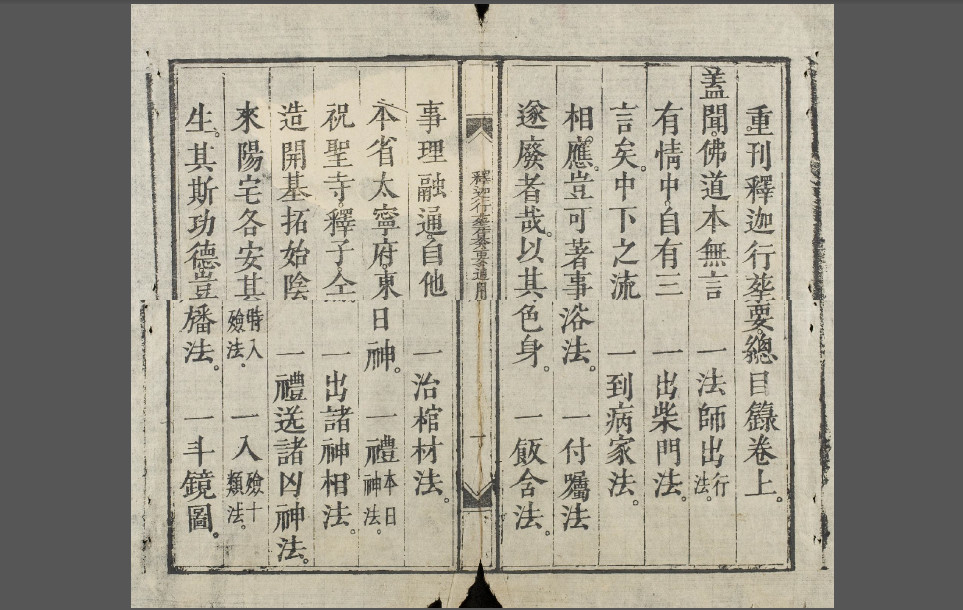 重刊釋迦行塟要總目錄卷上。
盖聞。佛道本無言一法師出行法。
有情中。自有三一出柴門法。
言矣。中下之流一到病家法。
相應。豈可著事浴法。一付囑法
遂廢者哉。以其色身。一飯含法。
釋迦行塟集要
事理融通。自他一治棺材法。
本省太寧府東日神。一禮本日神法。
祝聖寺。釋子。仝一出諸神相法。
造開基拓始陰一禮送諸凶神法。
來陽宅各安其時入殮法。一入殮十類法。
生。其斯功德豈旛法。一斗鏡圖。